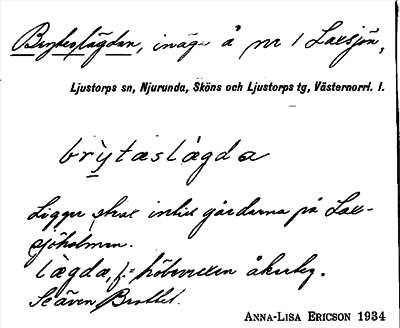 Bryteslägdan, inäga å nr 1 Laxsjön,
Ljustorps sn, Njurunda, Sköns och Ljustorps tg, Västernorrl. l.
brỳtæslàgda
Ligger strax intill gårdarna på Lax-
sjöholmen.
làgda, f. = höbevuxen åkerteg.
Se även Brottet.
ANNA-LISA ERICSON 1934